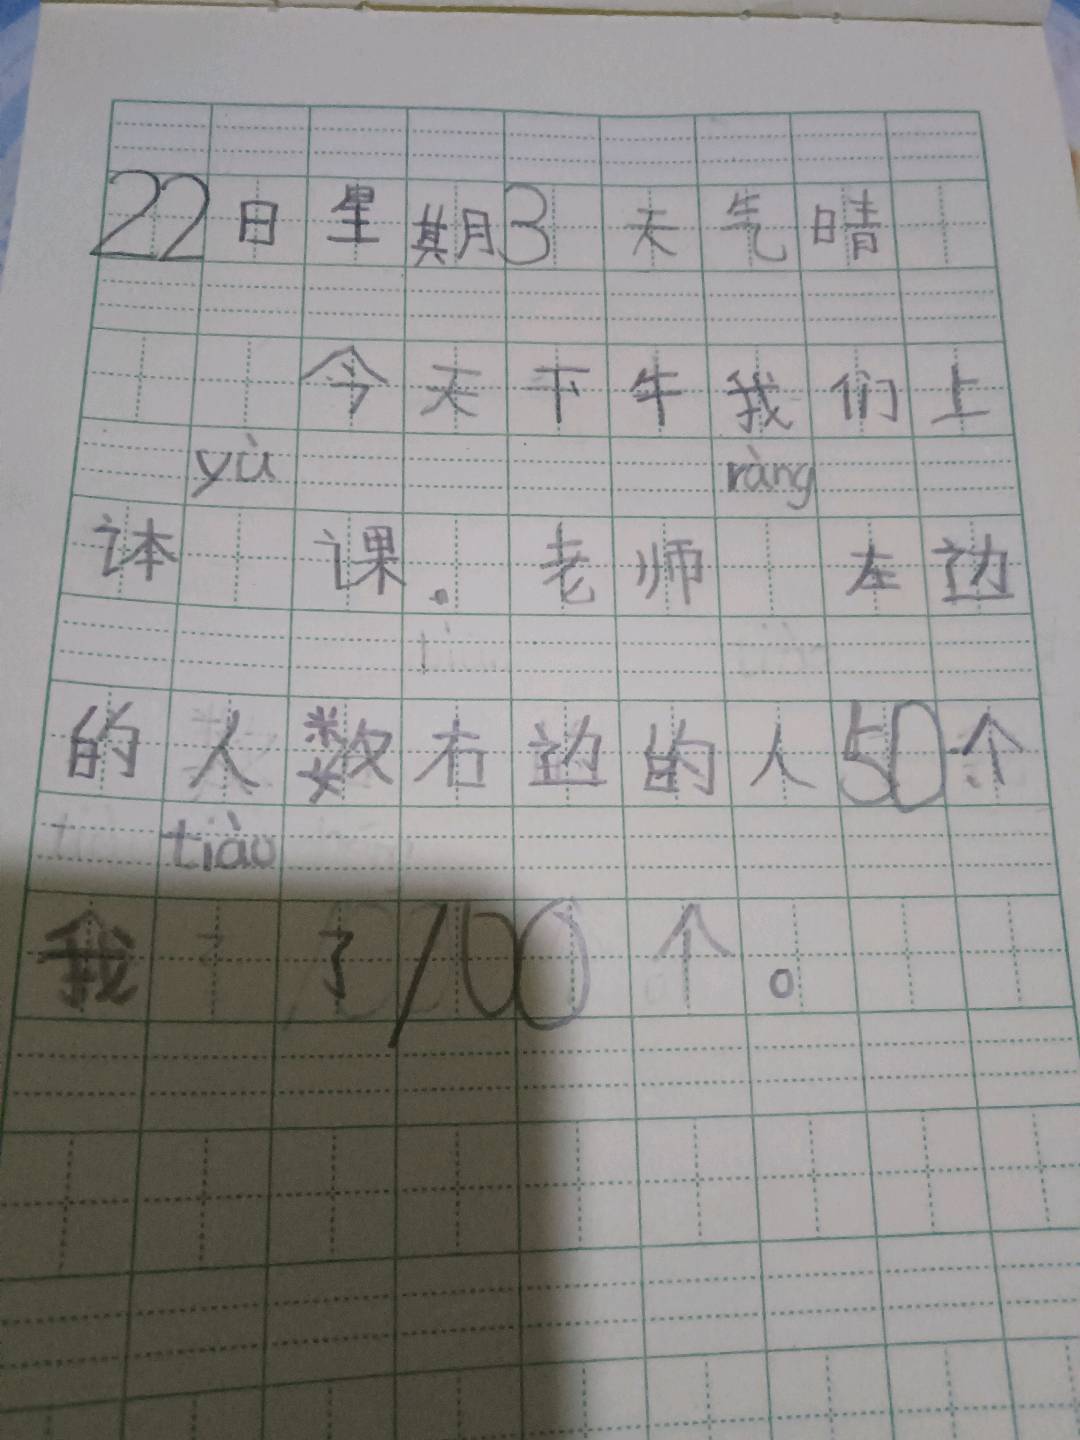 22日星期3 天气晴
今天下牛我们上
yù ràng
讠本 课. 老师 左边
的人数右边的人50个
tiào
我 了100个。